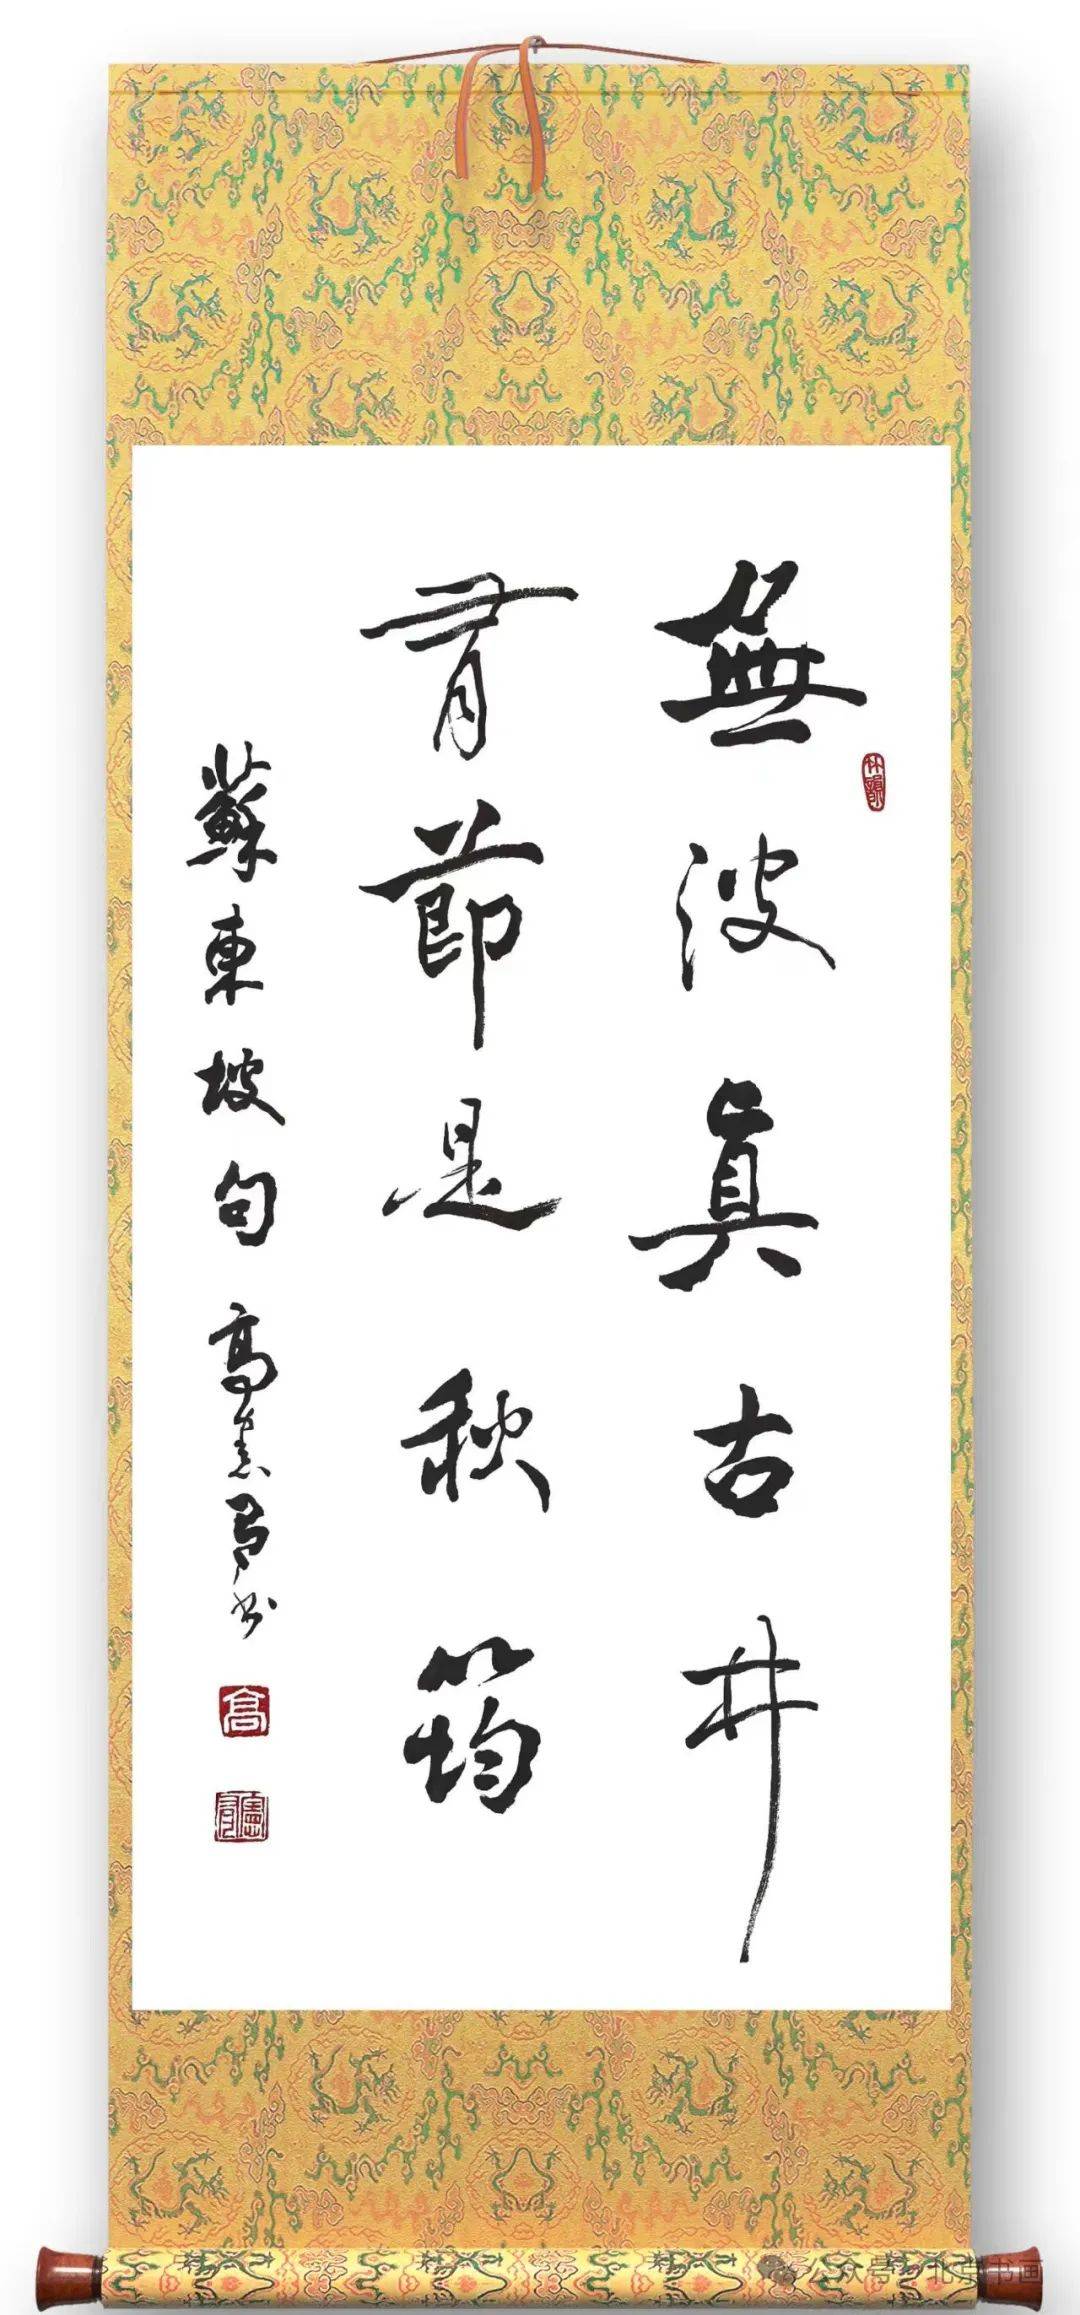 無波眞古井
有節是秋筠
蘇東坡句 高
高
公众号·北京书画